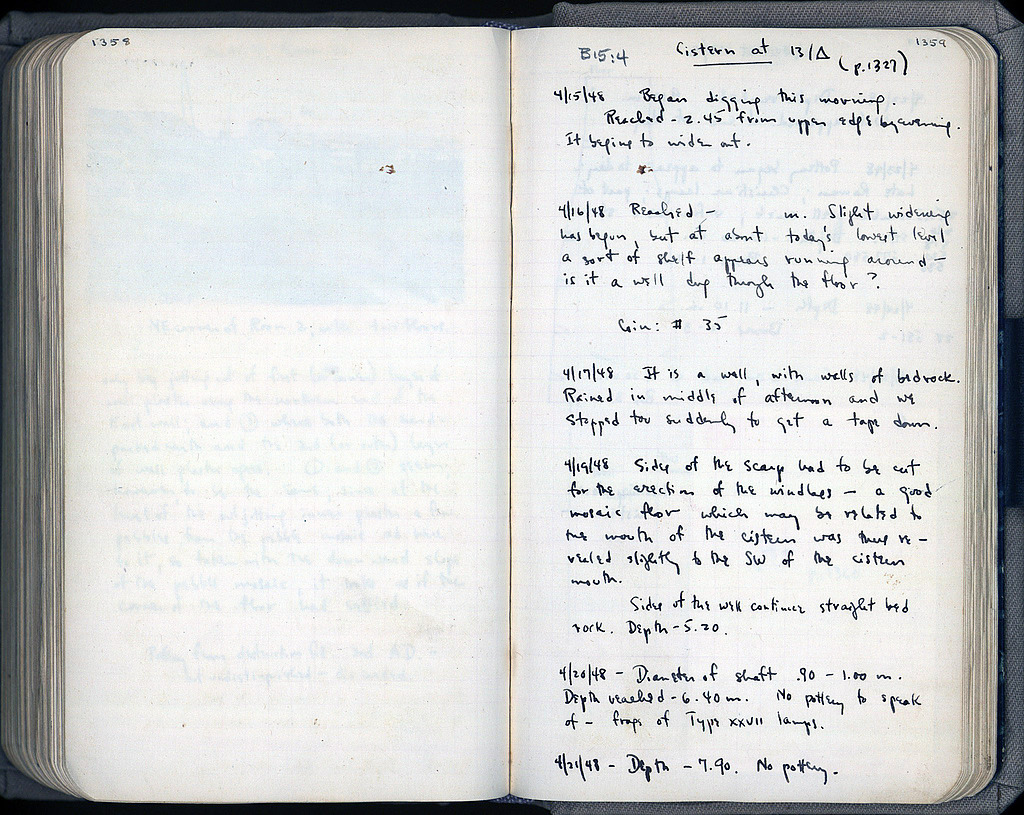 1358
1359
B15:4 Cistern at 13/Δ (p.1327)
4/15/48 Began digging this morning.
Reached -2.45 from upper edge by evening.
It begins to widen out.
4/16/48 Reached - m. Slight widening
has begun, but at about today's lowest level
a sort of shelf appears running around -
is it a well dug through the floor?
Coin: # 35
4/17/48 It is a well, with walls of bedrock.
Rained in middle of afternoon and we
stopped too suddenly to get a tape down.
4/19/48 Sides of the scarp had to be cut
for the erection of the windlass - a good
mosaic floor which may be related to
the mouth of the cistern was thus re-
vealed slightly to the SW of the cistern
mouth.
Sides of the well continue straight bed
rock. Depth -5.20.
4/20/48 - Diameter of shaft .90 - 1.00 m.
Depth reached - 6.40 m. No pottery to speak
of - frags of Type XXVII lamps.
4/21/48 - Depth - 7.90. No pottery.